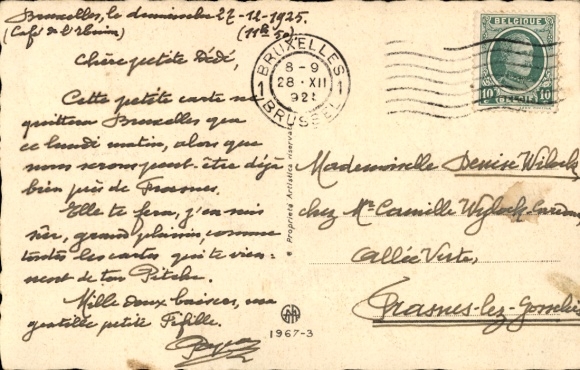 Bruxelles, le dimanche 27-12-1925.
(Café de l'Union) (11h 50)
Chère petite Dédé,
Cette petite carte ne
quittera Bruxelles que
ce lundi matin, alors que
nous serons peut-être déjà
bien près de Frasnes.
Elle te fera, j'en suis
sûr, grand plaisir, comme
toutes les cartes qui te vien-
nent de ton Pitche.
Mille doux baisers, ma
gentille petite Fifille.
Papa
BRUXELLES
1 8-9 1
28·XII
192
BRUSSEL
BELGIQUE
10 BELGIE 10
Proprieta Artistica riservata
Mademoiselle Denise Wilock
chez Mr Camille Wylock
Allée Verte,
Frasnes-lez-Gosselies
1967-3